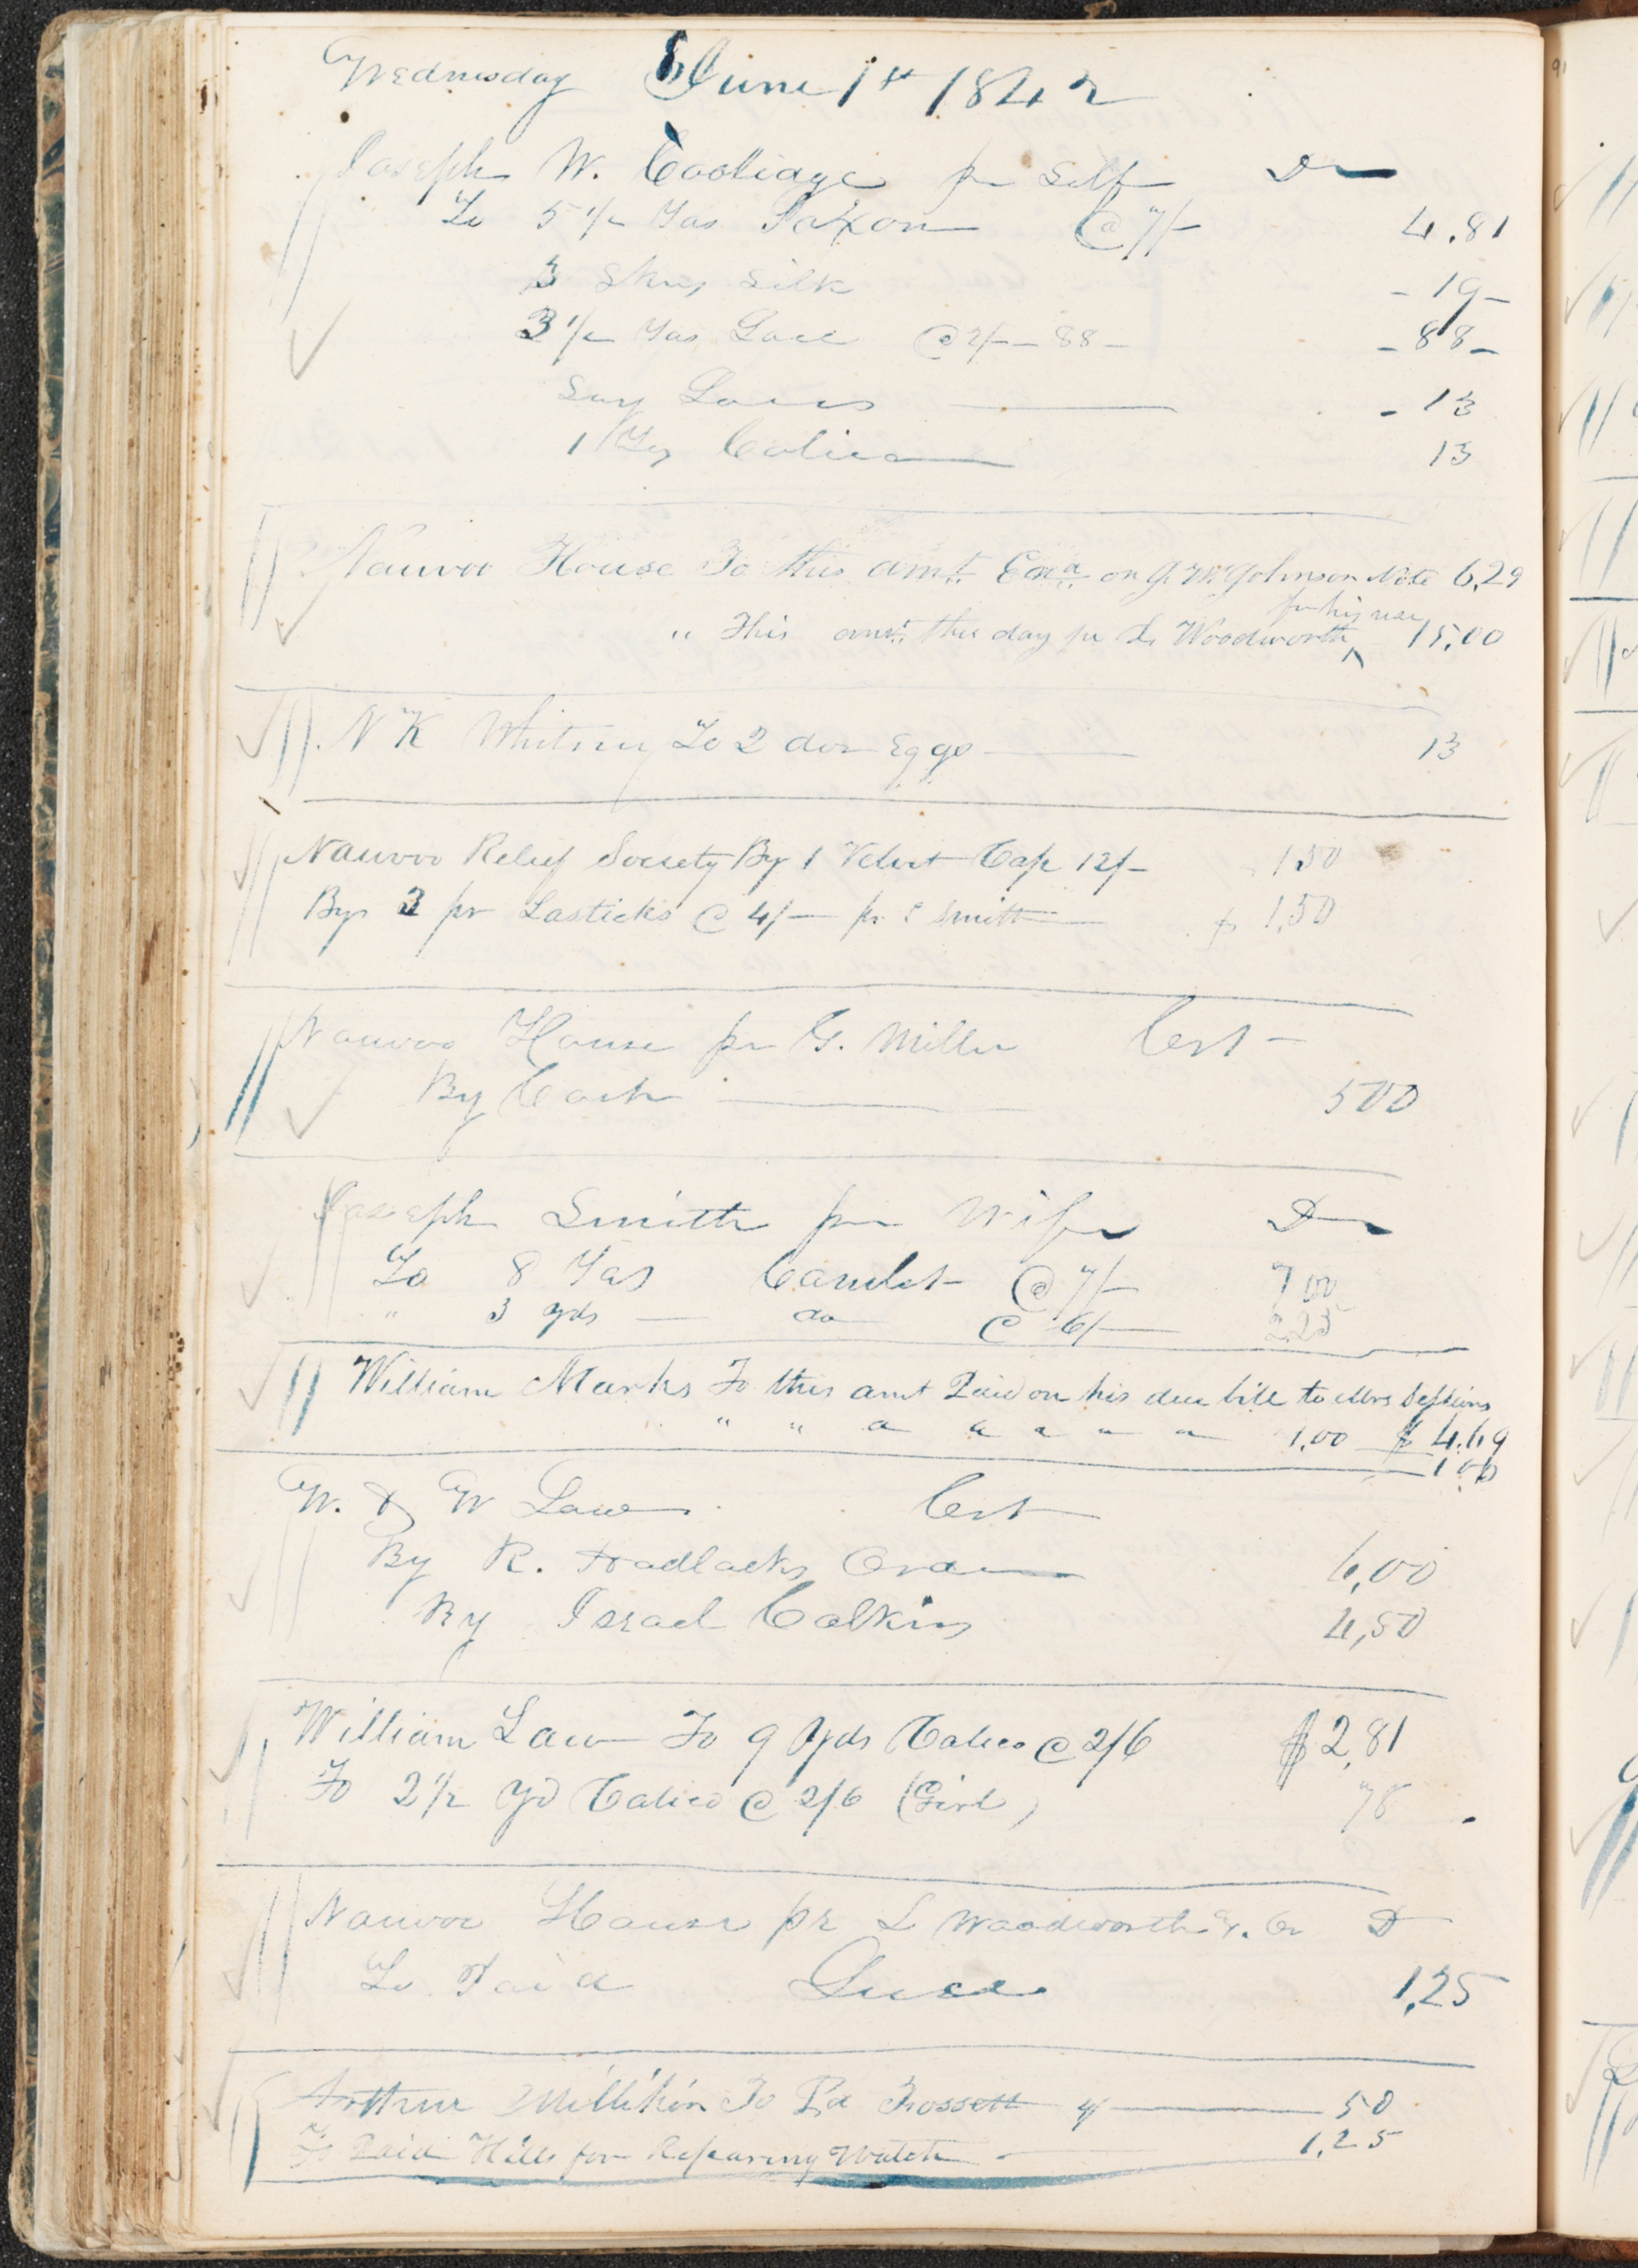 Wednesday June 1st 1842
Joseph W. Coolidge pr Self Dr
To 5 1/2 Yds Saxon @ 7/- 4.81
3 Skns Silk - 19 -
3 1/2 Yds Lace @ 2/- - 88 - - 88 -
Laces - 13
1 Calico 13
Nauvoo House To this amt. End. on J. M. Johnson Note 6.29
for his use
" This amt. this day pr L. Woodworth ^ 15.00
N K Whitney To 2 doz Eggs 13
Nauvoo Relief Society By 1 Velvet Cap 12/- 1.50
By 3 pr Lasticks @ 4/- pr E Smith $ 1.50
Nauvoo House pr G. Miller Crt -
By Cash 500
Joseph Smith pr Wife Dr
To 8 Yds Camlet @ 7/- 7 00
" 3 yds — do @ 6/- 2.25
William Marks To this amt Paid on his due bill to Mrs Sessions
" " " " " " " 1.00 $ 4.69
1.00
W. & W Law Crt
By R. Hadlocks Order 6,00
By Israel Calkins 4,50
William Law To 9 Yds Calico @ 2/6 $ 2,81
To 2 1/2 Yd Calico @ 2/6 (Girl) 78
Nauvoo House pr L Woodworth D
To Paid 1,25
Arthur Millikin To Pd Fossett 4/ 50
To Paid Hills for Reparing Watch - 1.25